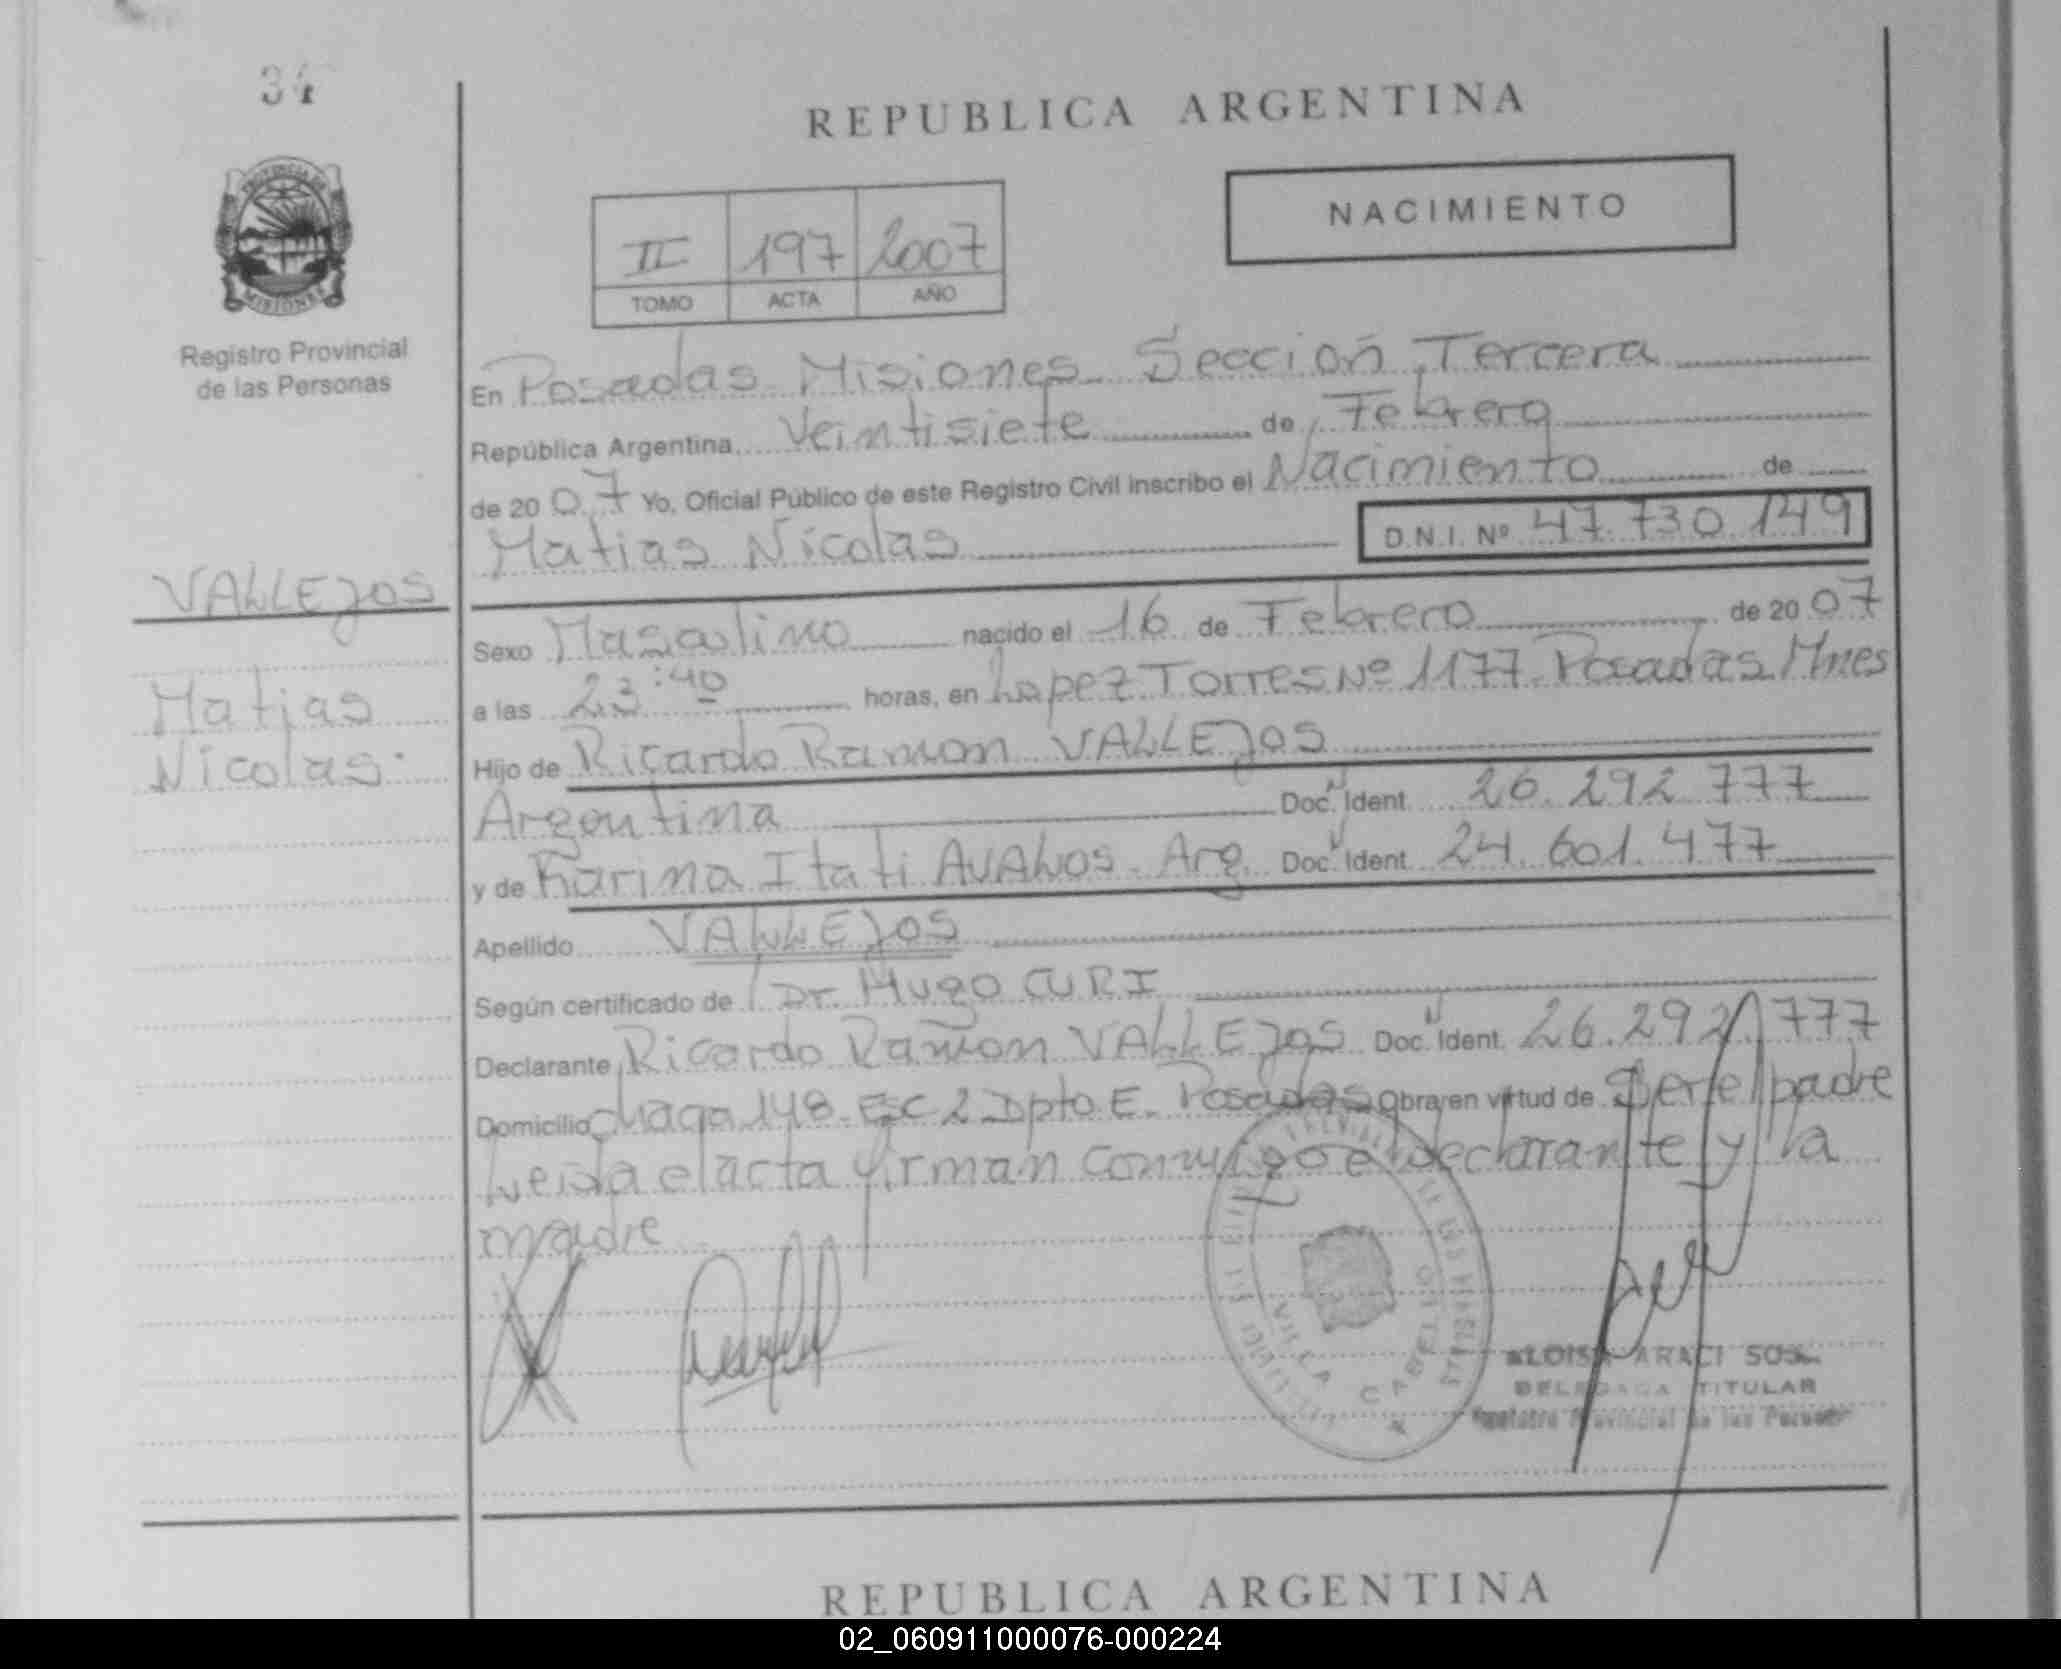 34
REPUBLICA ARGENTINA
PROVINCIA DE
MISIONES
Registro Provincial
de las Personas
NACIMIENTO
II 197 2007
TOMO ACTA AÑO
En Posadas Misiones Sección Tercera
República Argentina, Veintisiete de Febrero
de 2007 Yo, Oficial Público de este Registro Civil inscribo el Nacimiento de
Matias Nicolas D.N.I. Nº 47.730.149
VALLEJOS
Matias
Nicolas
Sexo Masculino nacido el 16 de Febrero de 2007
a las 23:40 horas, en Lopez Torres Nº 1177 Posadas Mnes
Hijo de Ricardo Ramon VALLEJOS
Argentina Doc. Ident. 26.292.777
y de Karina Itati AVALOS - Arg. Doc. Ident. 24.601.477
Apellido VALLEJOS
Según certificado de Dr. Hugo CURI
Declarante Ricardo Ramon VALLEJOS Doc. Ident. 26.292.777
Domicilio chaga 148 - Esc 2 Dpto E. Posadas Obra en virtud de Ser el padre
Leida el acta firman conmigo el declarante y la
madre
VILLA CABELLO
ARACI
DELEGADA TITULAR
Registro Provincial de las Personas
REPUBLICA ARGENTINA
02_060911000076-000224